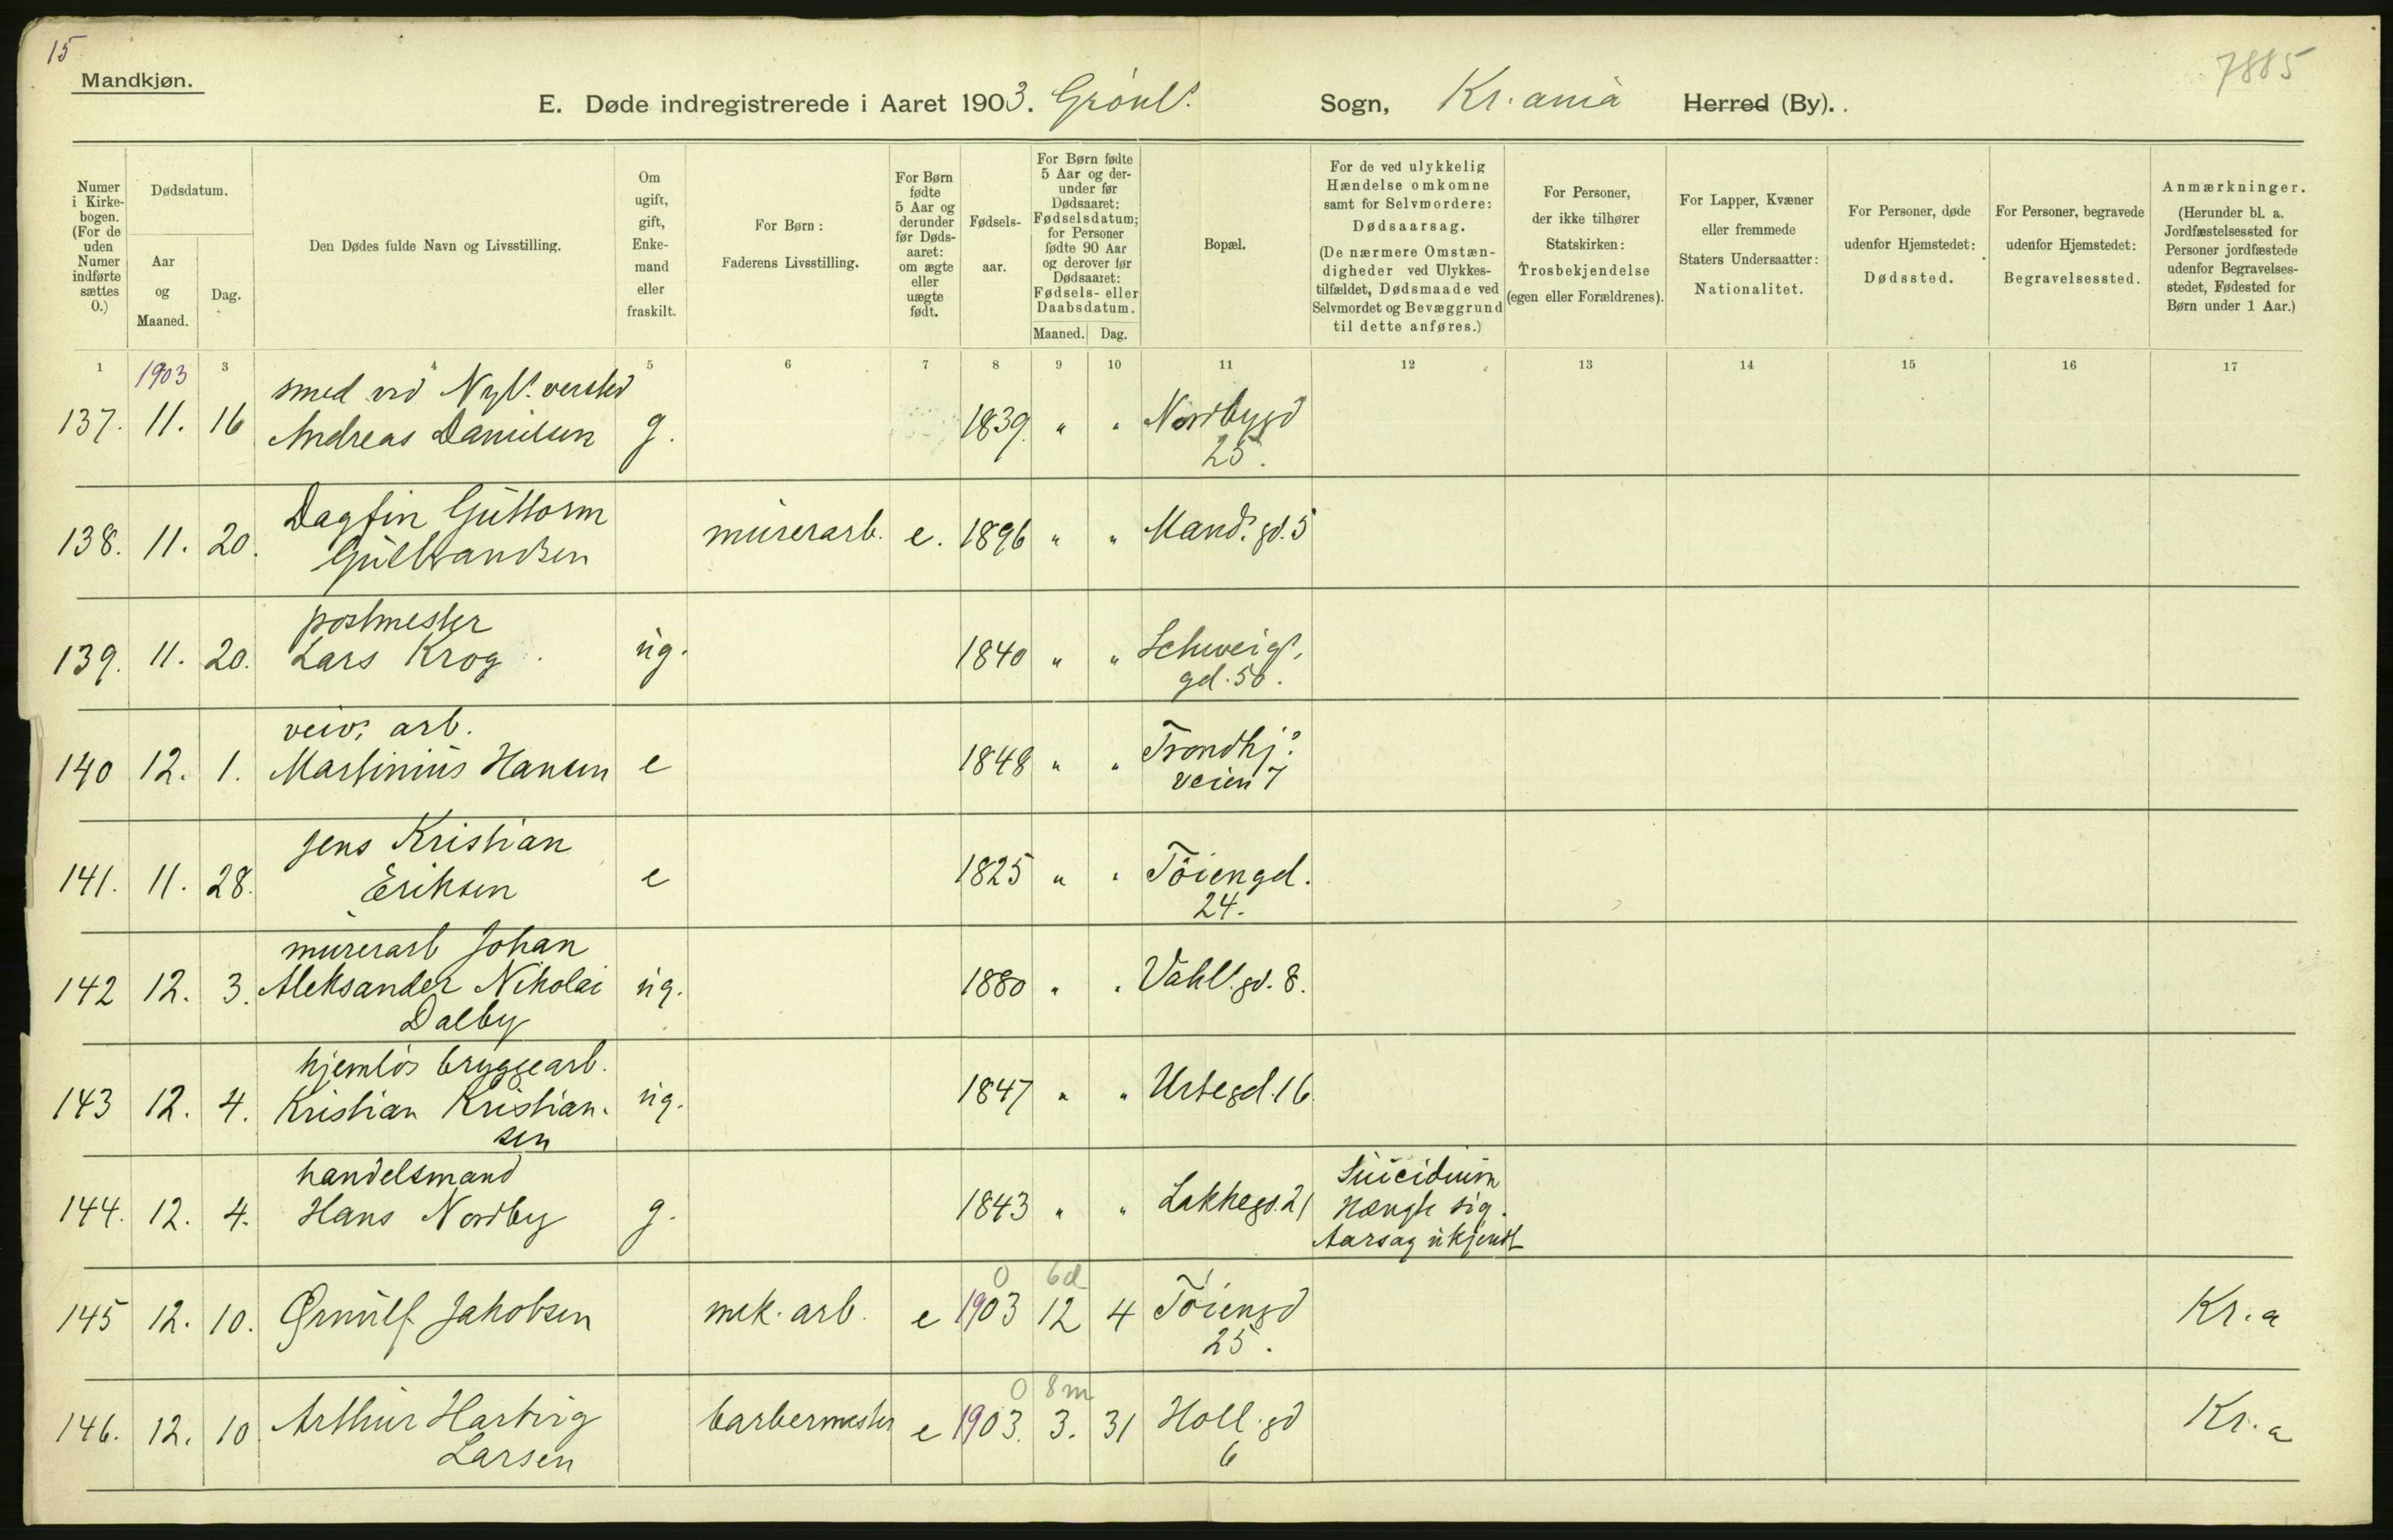 15
Mandkjøn.
7885
E. Døde indregistrerede i Aaret 1903. Grønl. Sogn, Kr.ania Herred (By).
Numer i Kirkebogen. (For de uden Numer indførte sættes 0.)
Dødsdatum.
Aar og Maaned.
Dag.
Den Dødes fulde Navn og Livsstilling.
Om ugift, gift, Enkemand eller fraskilt.
For Børn: Faderens Livsstilling.
For Børn fødte 5 Aar og derunder før Dødsaaret: om ægte eller uægte født.
Fødselsaar.
For Børn fødte 5 Aar og derunder før Dødsaaret: Fødselsdatum; for Personer fødte 90 Aar og derover før Dødsaaret: Fødsels- eller Daabsdatum.
Maaned. Dag.
Bopæl.
For de ved ulykkelig Hændelse omkomne samt for Selvmordere: Dødsaarsag. (De nærmere Omstændigheder ved Ulykkestilfældet, Dødsmaade ved Selvmordet og Bevæggrund til dette anføres.)
For Personer, der ikke tilhører Statskirken: Trosbekjendelse (egen eller Forældrenes).
For Lapper, Kvæner eller fremmede Staters Undersaatter: Nationalitet.
For Personer, døde udenfor Hjemstedet: Dødssted.
For Personer, begravede udenfor Hjemstedet: Begravelsessted.
Anmærkninger. (Herunder bl. a. Jordfæstelsessted for Personer jordfæstede udenfor Begravelsesstedet, Fødested for Børn under 1 Aar.)
1 1903 3 4 5 6 7 8 9 10 11 12 13 14 15 16 17
smed ved Nyl. versted
137. 11. 16 Andreas Danielsen g. 1839. " " Nordbygd
25.
Dagfin Guttorm
138. 11. 20. Gulbrandsen murerarb. e. 1896 " " Mand. gd. 5
postmester
139. 11. 20. Lars Krog ug. 1840 " " Schweig.
gd. 50.
veiv. arb.
140 12. 1. Martinius Hansen e 1848 " " Trondhj.
veien 7
Jens Kristian
141. 11. 28. Eriksen e 1825 " " Tøiengd.
24.
murerarb Johan
142 12. 3. Aleksander Nikolai ug. 1880 " " Vahl. gd. 8.
Dalby
hjemløs bryggearb.
143 12. 4. Kristian Kristian- ug. 1847 " " Urtegd. 16
sen
handelsmand Suicidium
144. 12. 4. Hans Nordby g. 1843 " " Lakkegd. 21 Hængte sig.
Aarsag ukjendt
0 6d
145 12. 10. Ørnulf Jakobsen mek. arb. e 1903 12 4 Tøiengd Kr.a
25.
0 8m
146. 12. 10 Arthur Hartvig barbermester e 1903. 3. 31 Holl. gd Kr.a
Larsen 6